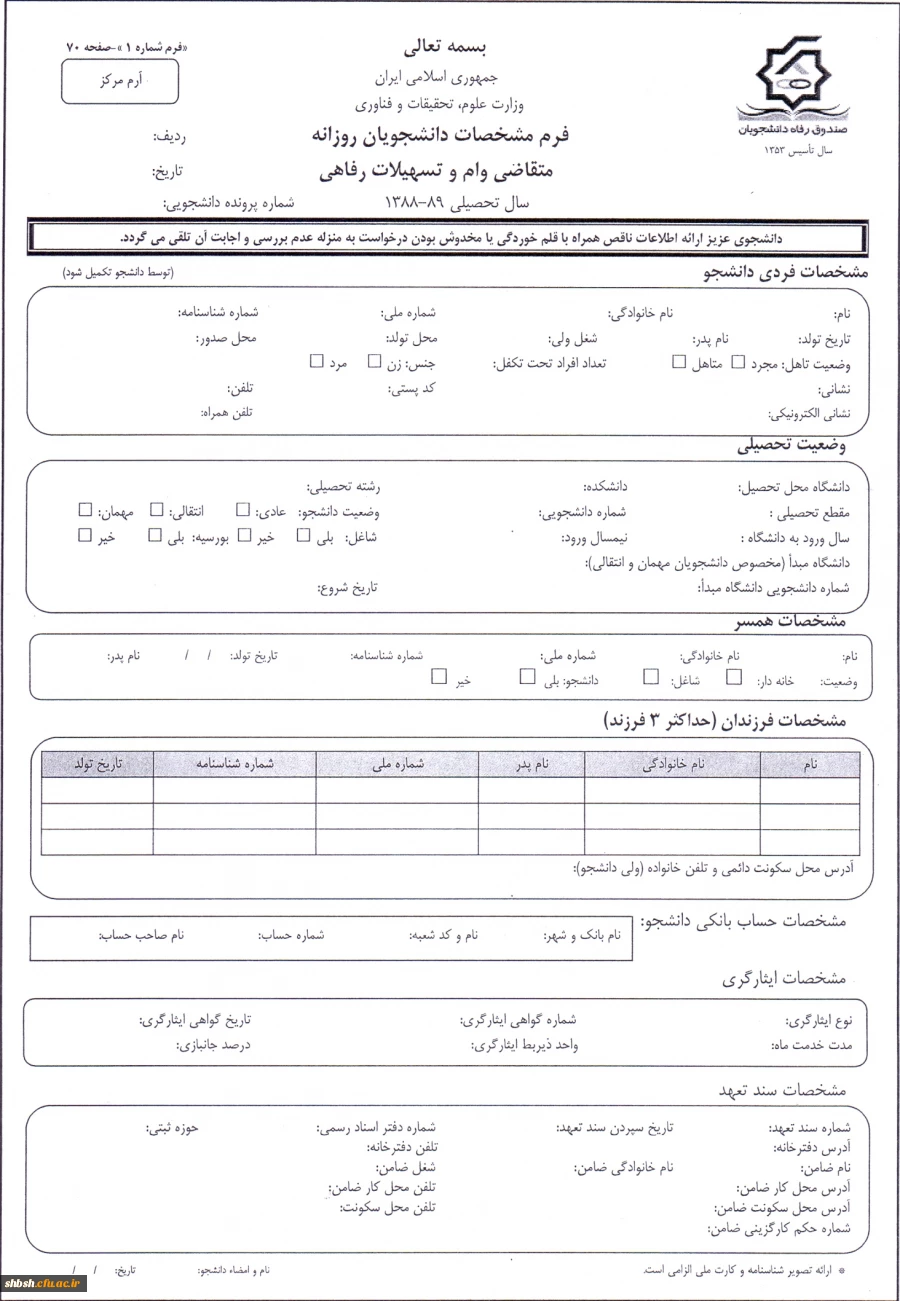 بسمه تعالی
«فرم شماره ۱»-صفحه ۷۰
جمهوری اسلامی ایران
آرم مرکز
وزارت علوم، تحقیقات و فناوری
صندوق رفاه دانشجویان
سال تأسیس ۱۳۵۳
فرم مشخصات دانشجویان روزانه
ردیف:
متقاضی وام و تسهیلات رفاهی
تاریخ:
سال تحصیلی ۸۹-۱۳۸۸
شماره پرونده دانشجویی:
دانشجوی عزیز ارائه اطلاعات ناقص همراه با قلم خوردگی یا مخدوش بودن درخواست به منزله عدم بررسی و اجابت آن تلقی می گردد.
مشخصات فردی دانشجو (توسط دانشجو تکمیل شود)
نام: نام خانوادگی: شماره ملی: شماره شناسنامه:
تاریخ تولد: نام پدر: شغل ولی: محل تولد: محل صدور:
وضعیت تاهل: مجرد □ متاهل □ تعداد افراد تحت تکفل: جنس: زن □ مرد □
نشانی: کد پستی: تلفن:
نشانی الکترونیکی: تلفن همراه:
وضعیت تحصیلی
دانشگاه محل تحصیل: دانشکده: رشته تحصیلی:
مقطع تحصیلی : شماره دانشجویی: وضعیت دانشجو: عادی: □ انتقالی: □ مهمان: □
سال ورود به دانشگاه : نیمسال ورود: شاغل: بلی □ خیر □ بورسیه: بلی □ خیر □
دانشگاه مبدأ (مخصوص دانشجویان مهمان و انتقالی):
شماره دانشجویی دانشگاه مبدأ: تاریخ شروع:
مشخصات همسر
نام: نام خانوادگی: شماره ملی: شماره شناسنامه: تاریخ تولد: / / نام پدر:
وضعیت: خانه دار: □ شاغل: □ دانشجو: بلی □ خیر □
مشخصات فرزندان (حداکثر ۳ فرزند)
نام نام خانوادگی نام پدر شماره ملی شماره شناسنامه تاریخ تولد
آدرس محل سکونت دائمی و تلفن خانواده (ولی دانشجو):
مشخصات حساب بانکی دانشجو:
نام بانک و شهر: نام و کد شعبه: شماره حساب: نام صاحب حساب:
مشخصات ایثارگری
نوع ایثارگری: شماره گواهی ایثارگری: تاریخ گواهی ایثارگری:
مدت خدمت ماه: واحد ذیربط ایثارگری: درصد جانبازی:
مشخصات سند تعهد
شماره سند تعهد: تاریخ سپردن سند تعهد: شماره دفتر اسناد رسمی: حوزه ثبتی:
آدرس دفترخانه: تلفن دفترخانه:
نام ضامن: نام خانوادگی ضامن: شغل ضامن:
آدرس محل کار ضامن: تلفن محل کار ضامن:
آدرس محل سکونت ضامن: تلفن محل سکونت:
شماره حکم کارگزینی ضامن:
* ارائه تصویر شناسنامه و کارت ملی الزامی است. نام و امضاء دانشجو: تاریخ: / /
shbsh.cfu.ac.ir